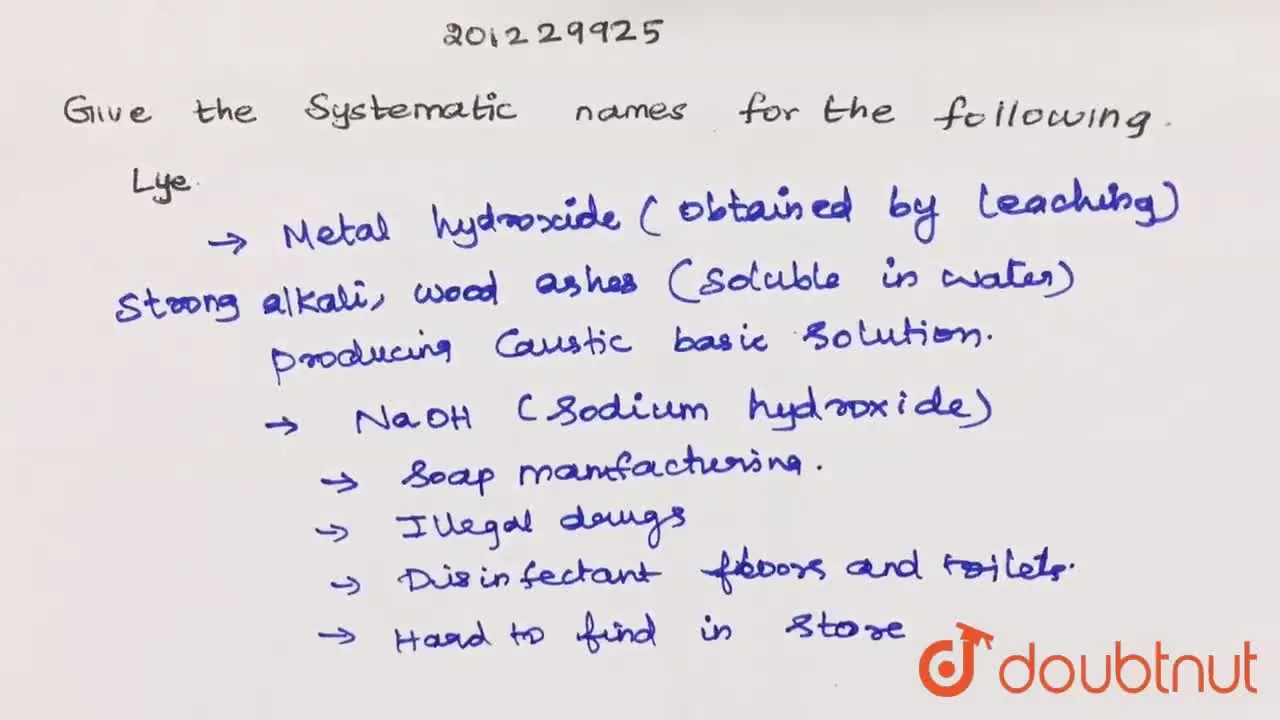 201229925
Give the Systematic names for the following.
Lye.
→ Metal hydroxide (obtained by leaching)
Strong alkali, wood ashes (soluble in water)
producing caustic basic solution.
→ NaOH (Sodium hydroxide)
→ Soap manfacturing.
→ Illegal daugs
→ Disinfectant floors and toilets.
→ Hard to find in store
doubtnut